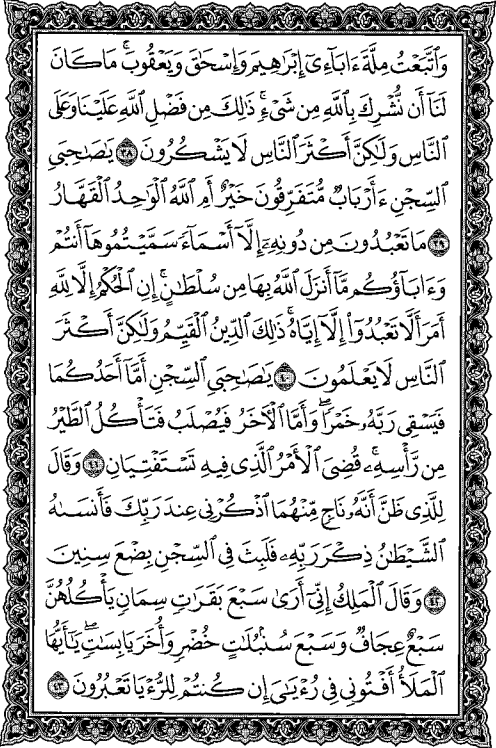 وَٱتَّبَعۡتُ مِلَّةَ ءَابَآءِيٓ إِبۡرَٰهِيمَ وَإِسۡحَٰقَ وَيَعۡقُوبَۚ مَا كَانَ
لَنَآ أَن نُّشۡرِكَ بِٱللَّهِ مِن شَيۡءٖۚ ذَٰلِكَ مِن فَضۡلِ ٱللَّهِ عَلَيۡنَا وَعَلَى
ٱلنَّاسِ وَلَٰكِنَّ أَكۡثَرَ ٱلنَّاسِ لَا يَشۡكُرُونَ ٣٨ يَٰصَٰحِبَيِ
ٱلسِّجۡنِ ءَأَرۡبَابٞ مُّتَفَرِّقُونَ خَيۡرٌ أَمِ ٱللَّهُ ٱلۡوَٰحِدُ ٱلۡقَهَّارُ
٣٩ مَا تَعۡبُدُونَ مِن دُونِهِۦٓ إِلَّآ أَسۡمَآءٗ سَمَّيۡتُمُوهَآ أَنتُمۡ
وَءَابَآؤُكُم مَّآ أَنزَلَ ٱللَّهُ بِهَا مِن سُلۡطَٰنٍۚ إِنِ ٱلۡحُكۡمُ إِلَّا لِلَّهِ
أَمَرَ أَلَّا تَعۡبُدُوٓاْ إِلَّآ إِيَّاهُۚ ذَٰلِكَ ٱلدِّينُ ٱلۡقَيِّمُ وَلَٰكِنَّ أَكۡثَرَ
ٱلنَّاسِ لَا يَعۡلَمُونَ ٤٠ يَٰصَٰحِبَيِ ٱلسِّجۡنِ أَمَّآ أَحَدُكُمَا
فَيَسۡقِي رَبَّهُۥ خَمۡرٗاۖ وَأَمَّا ٱلۡأٓخَرُ فَيُصۡلَبُ فَتَأۡكُلُ ٱلطَّيۡرُ
مِن رَّأۡسِهِۦۚ قُضِيَ ٱلۡأَمۡرُ ٱلَّذِي فِيهِ تَسۡتَفۡتِيَانِ ٤١ وَقَالَ
لِلَّذِي ظَنَّ أَنَّهُۥ نَاجٖ مِّنۡهُمَا ٱذۡكُرۡنِي عِندَ رَبِّكَ فَأَنسَىٰهُ
ٱلشَّيۡطَٰنُ ذِكۡرَ رَبِّهِۦ فَلَبِثَ فِي ٱلسِّجۡنِ بِضۡعَ سِنِينَ
٤٢ وَقَالَ ٱلۡمَلِكُ إِنِّيٓ أَرَىٰ سَبۡعَ بَقَرَٰتٖ سِمَانٖ يَأۡكُلُهُنَّ
سَبۡعٌ عِجَافٞ وَسَبۡعَ سُنۢبُلَٰتٍ خُضۡرٖ وَأُخَرَ يَابِسَٰتٖۖ يَٰٓأَيُّهَا
ٱلۡمَلَأُ أَفۡتُونِي فِي رُءۡيَٰيَ إِن كُنتُمۡ لِلرُّءۡيَا تَعۡبُرُونَ ٤٣